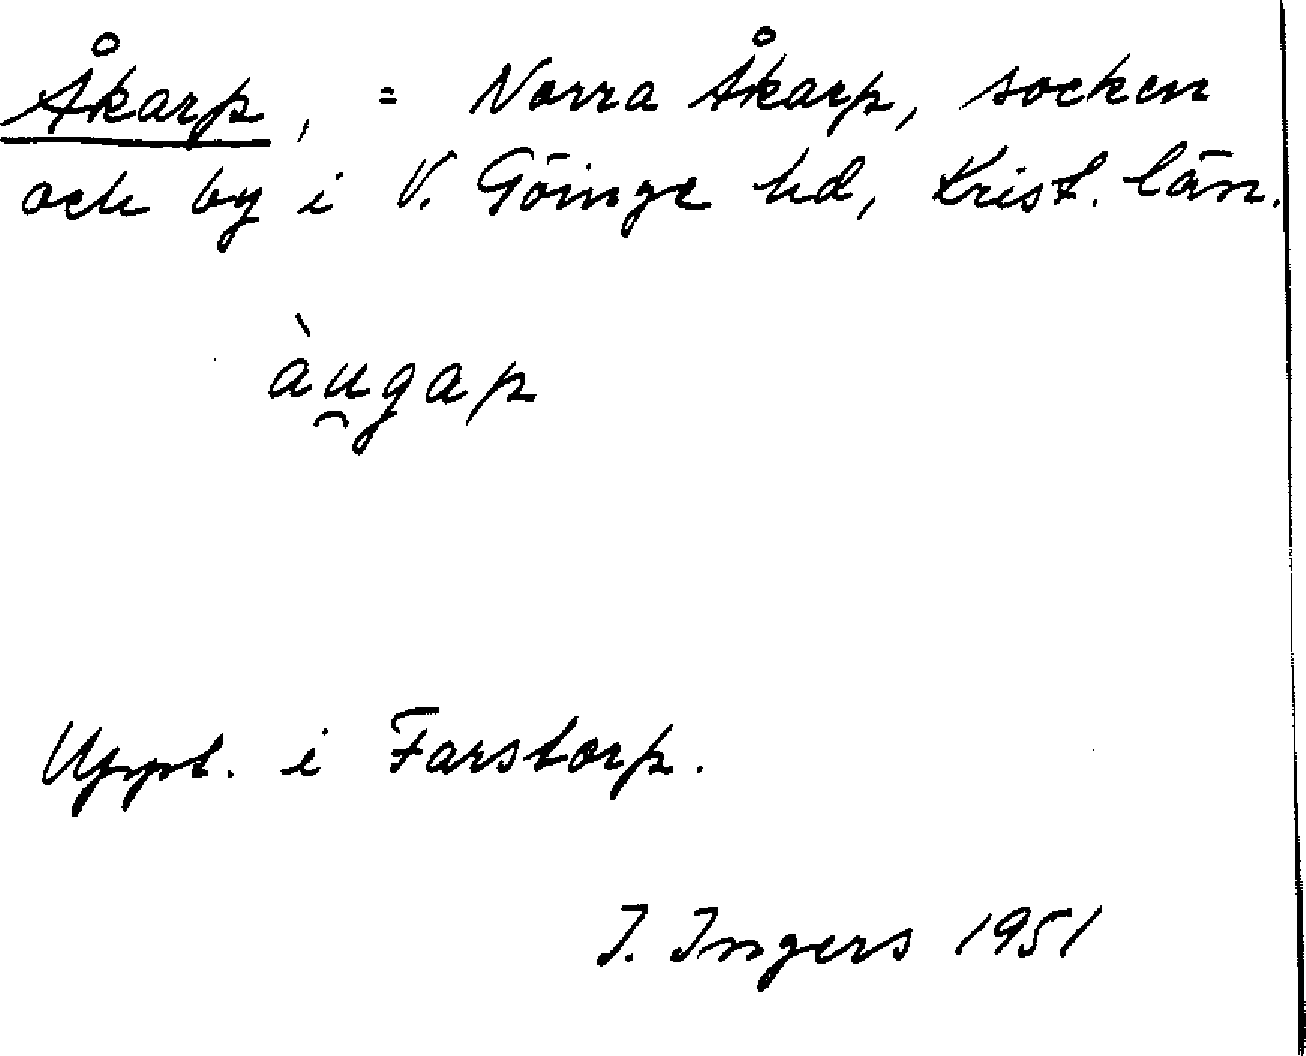 Åkarp, = Norra Åkarp, socken
och by i V. Göinge hd, Krist. län.
àu̯gap
Uppt. i Farstorp.
I. Ingers 1951